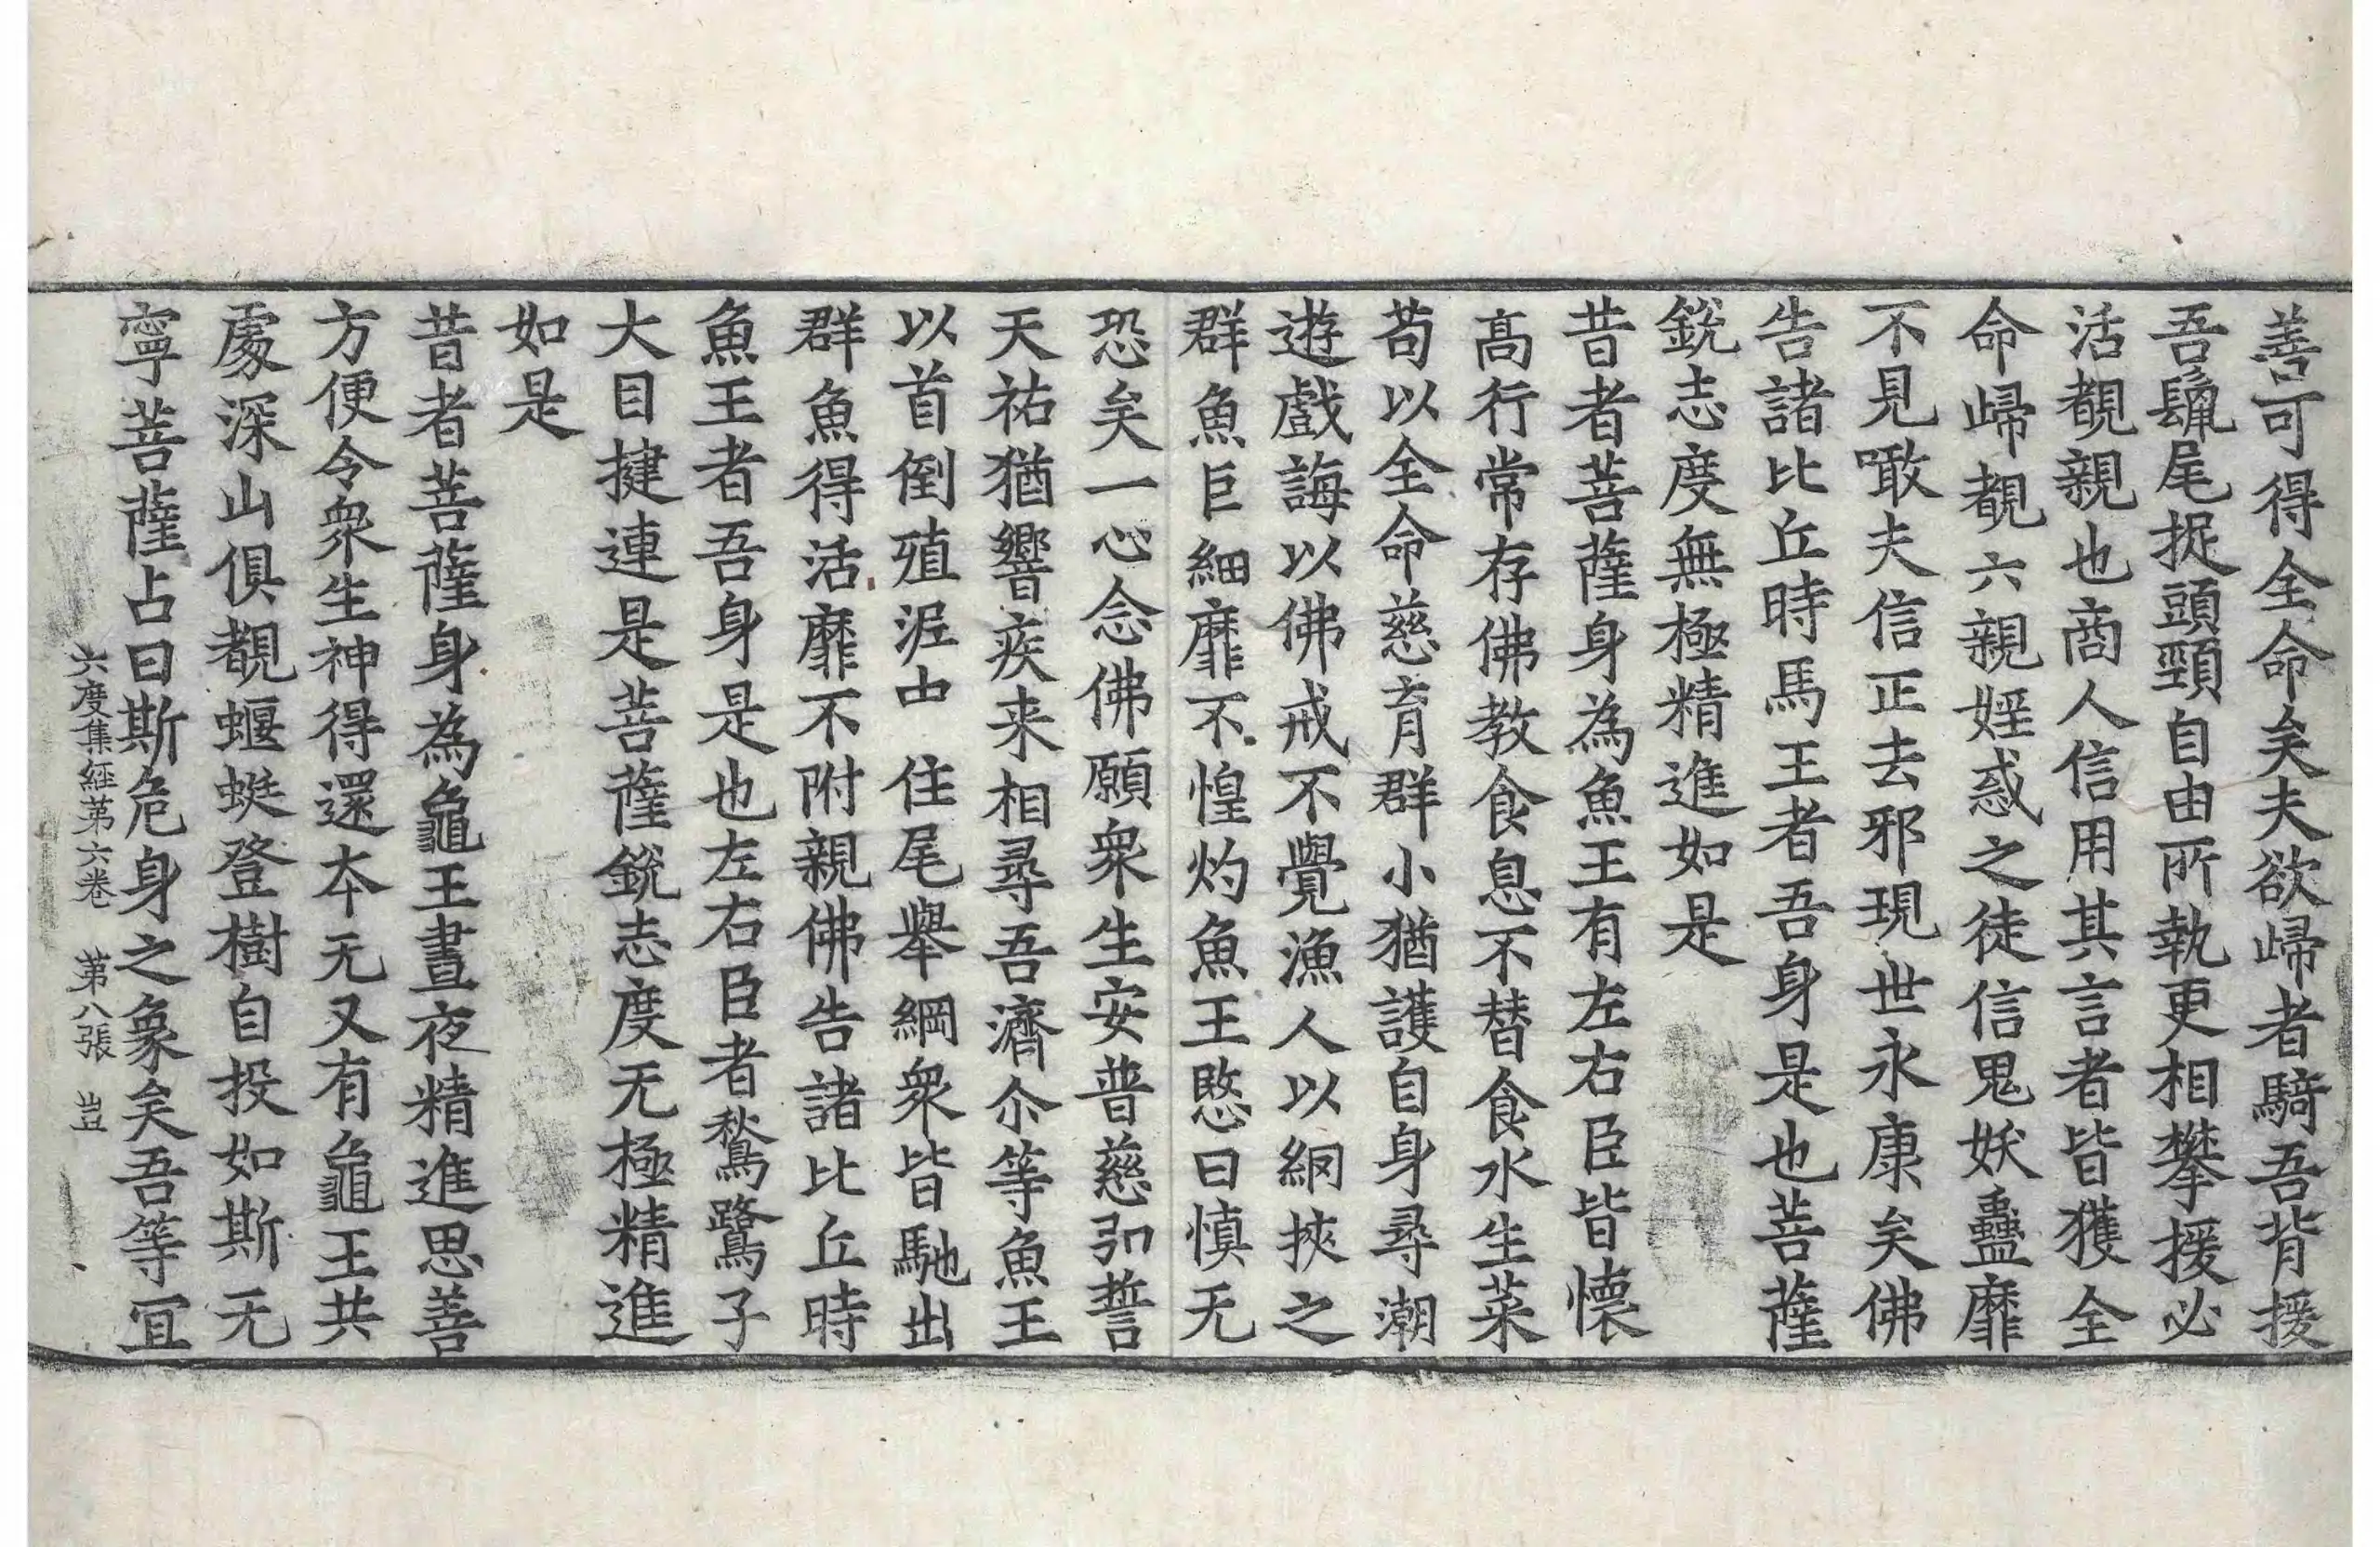 善可得全命矣夫欲歸者騎吾背援
吾騣尾捉頭頸自由所執更相攀援必
活覩親也商人信用其言者皆獲全
命歸覩六親婬惑之徒信鬼妖蠱靡
不見噉夫信正去邪現世永康矣佛
告諸比丘時馬王者吾身是也菩薩
銳志度無極精進如是
昔者菩薩身為魚王有左右臣皆懷
高行常存佛教食息不替食水生菜
苟以全命慈育群小猶護自身尋潮
遊戲誨以佛戒不覺漁人以網挾之
群魚巨細靡不惶灼魚王愍曰慎无
恐矣一心念佛願衆生安普慈弘誓
天祐猶響疾来相尋吾濟尒等魚王
以首倒殖泥中住尾舉綱衆皆馳出
群魚得活靡不附親佛告諸比丘時
魚王者吾身是也左右臣者鶖鷺子
大目揵連是菩薩銳志度无極精進
如是
昔者菩薩身為龜王晝夜精進思善
方便令衆生神得還夲无又有龜王共
處深山俱覩蝘蜓登樹自投如斯无
寧菩薩占曰斯危身之象矣吾等冝
六度集經第六卷 第八張 豈